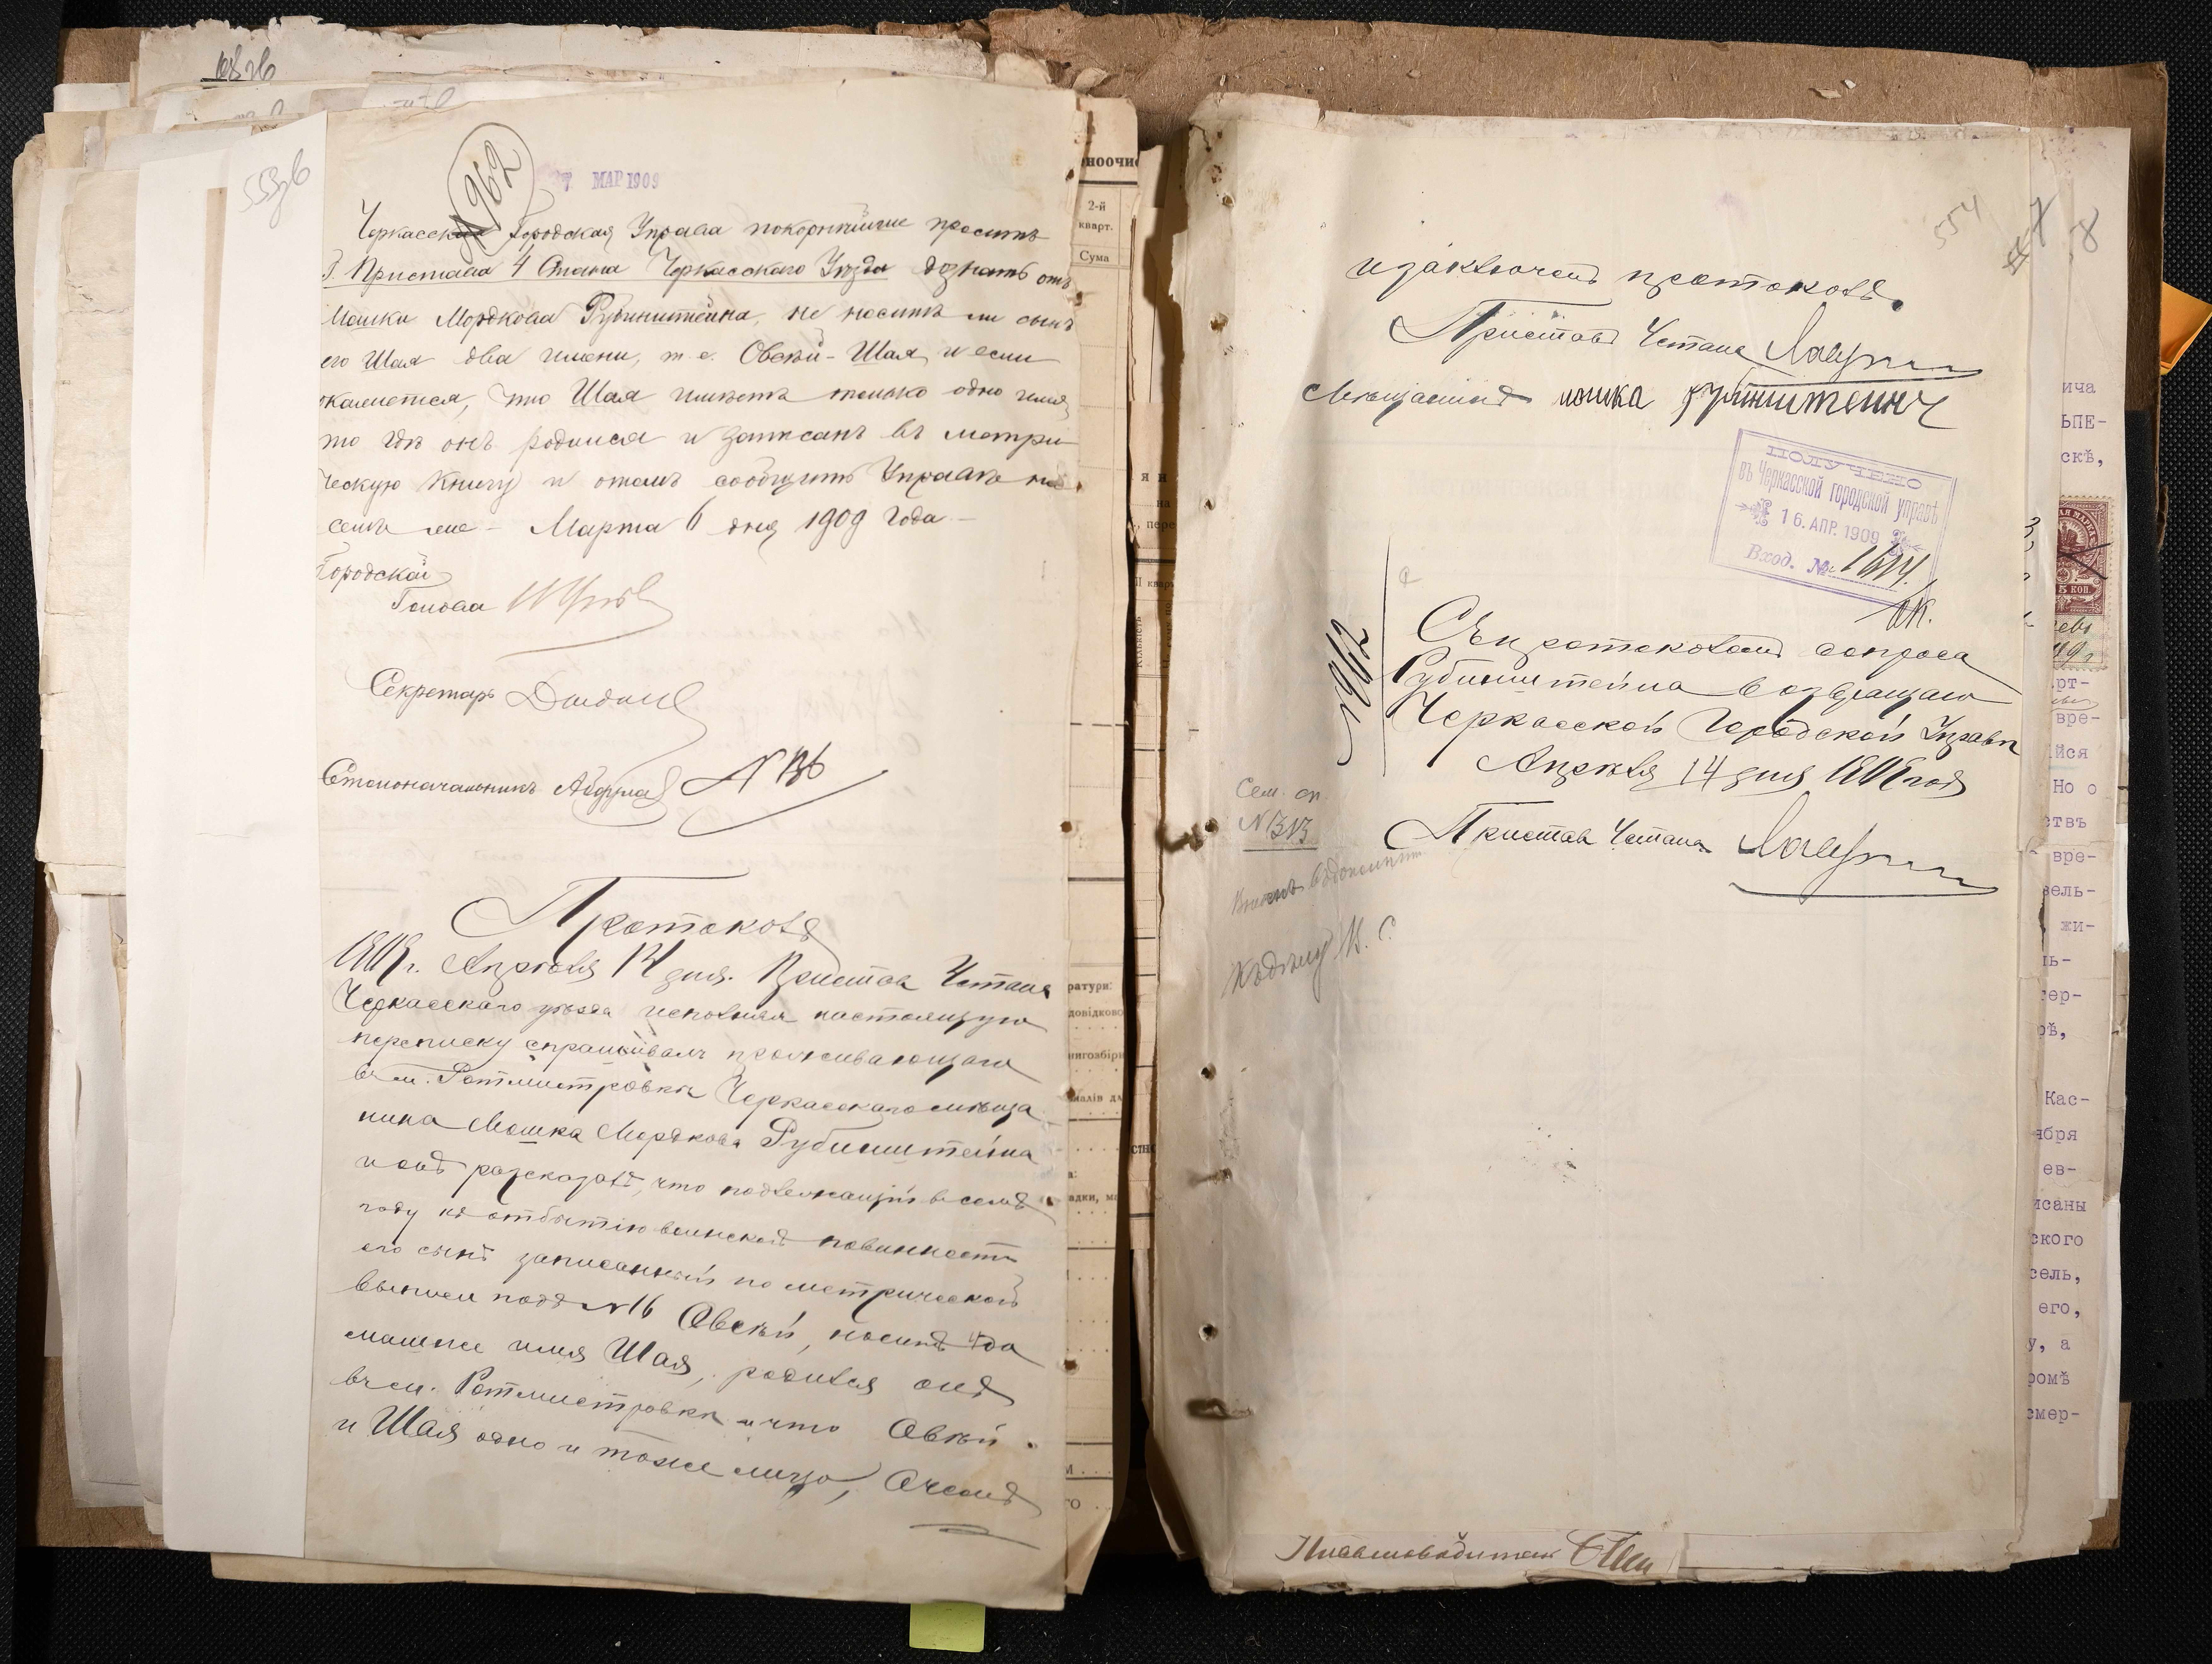 553об
№ 962
7 МАР 1909
Черкасская Городская Управа покорнѣйше проситъ
Г. Пристава 4 Стана Черкасскаго Уѣзда дознать отъ
Мошки Мордкова Рубинштейна, не носитъ ли сынъ
его Шая два имени, т. е. Овсѣй-Шая, и если
окажется, что Шая имѣетъ только одно имя,
то гдѣ онъ родился и записанъ въ метри
ческую книгу и о томъ сообщить Управѣ на
семъ же – Марта 6 дня 1909 года –
Городской
Голова
Секретарь
Столоначальникъ
N 136
Протоколъ
1909 г. Апрѣля 14 дня. Приставъ 4 стана
Черкасскаго уѣзда исполняя настоящую
переписку спрашивалъ проживающаго
въ м. Ротмистровкѣ Черкасскаго мѣща
нина Мошка Мордкова Рубинштейна
и онъ разсказалъ, что подлежащій въ семъ
году къ отбытію воинской повинности
его сынъ записанный по метрической
выписи подъ N 16 Овсѣй, носитъ и до
машнее имя Шая, родился онъ
въ м. Ротмистровкѣ и что Овсѣй
и Шая одно и тоже лицо, О чемъ
554
7
8
и заключенъ протоколъ.
Приставъ 4 стана
Мѣщанинъ мошка рубинштейнъ
ПОЛУЧЕНО
въ Черкасской городской управѣ
16. АПР. 1909
Вход. №
N 962
Съ протоколомъ допроса
Рубинштейна возвращаю
Черкасской Городской Управѣ
Апрѣля 14 дня 1909 года
Приставъ 4 стана
Сем. сп.
N 313
Къ дѣлу
Письмоводитель
ноочи
2-й
кварт.
Сума
ича
ЬПЕ-
скѣ,
рт-
вре-
йся
Но о
ствъ
вре-
ель-
жи-
Кас-
ября
ев-
исаны
ского
сель,
его,
у, а
ромѣ
смер-